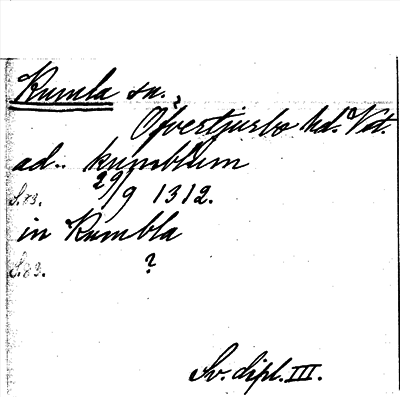 Kumla sn.
Ofvertjurbo hd. Vst.
ad.. kumblum
S. 83. 29/9 1312.
in Kumbla
S. 83. ?
Sv. dipl. III.